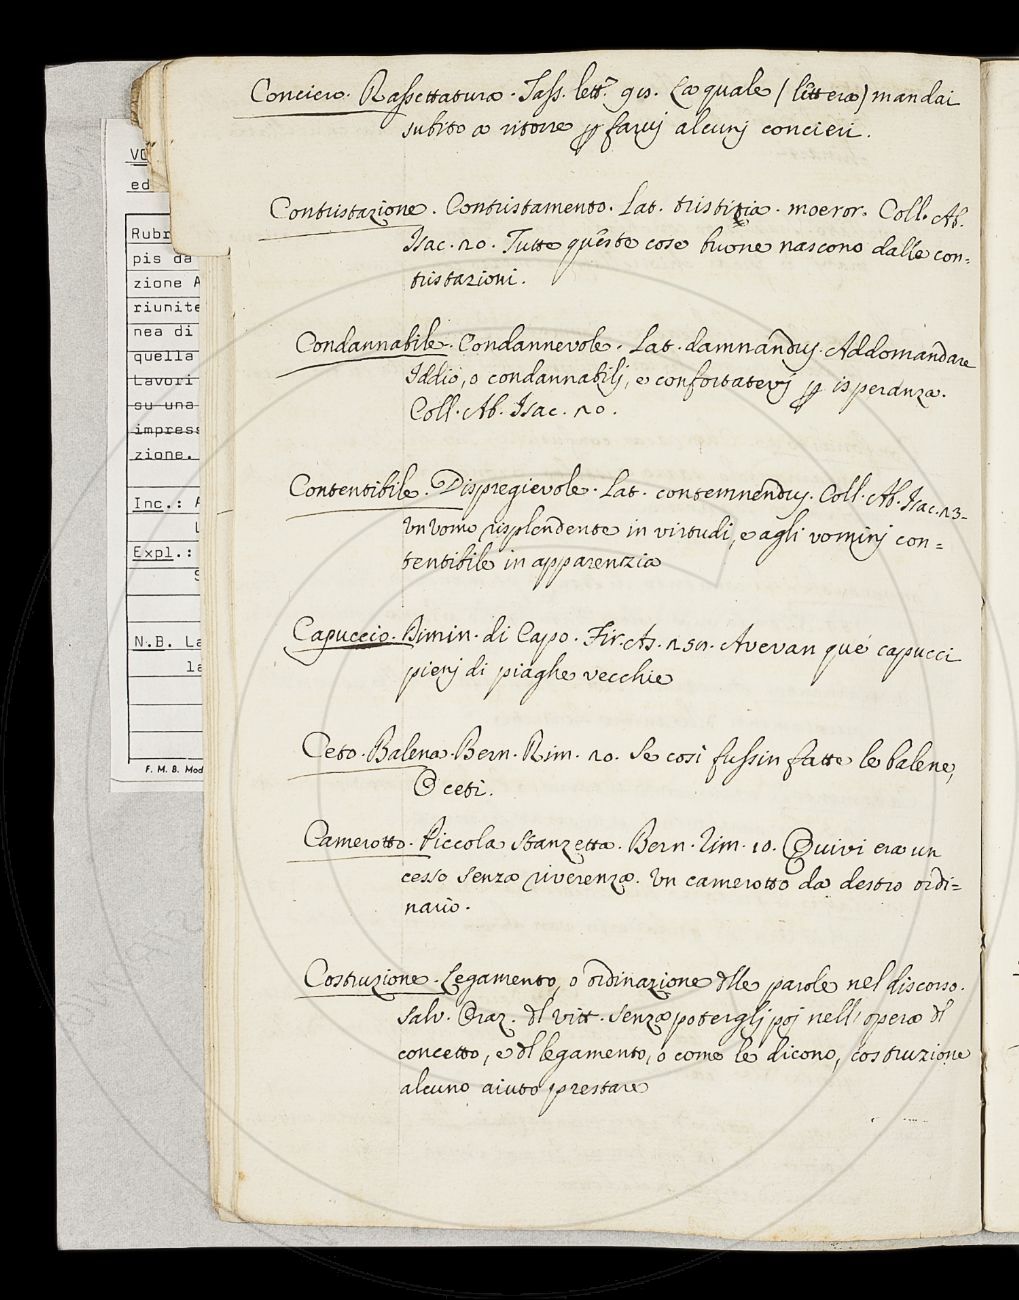 Conciero. Rassettatura. Tass. lett. 910. La quale (lettera) mandai
subito a ritorre p farvj alcunj concieri.
Contristazione. Contristamento. Lat. tristitia. moeror. Coll. Ab.
Isac. 20. Tutte queste cose buone nascono dalle con=
tristazioni.
Condannabile. Condannevole. Lat. damnandus. Addomandare
Iddio, o condannabilj, e confortatevj p isperanza.
Coll. Ab. Isac. 20.
Contentibile. Dispregievole. Lat. contemnendus. Coll. Ab. Isac. 23.
Un uomo risplendente in virtudi, e agli vominj con=
tentibile in apparenzia
Capuccio. Dimin. di Capo. Fir. As. 250. Avevan que' capucci
pienj di piaghe vecchie
Ceto. Balena. Bern. Rim. 20. Se così fussin fatte le balene,
O ceti.
Camerotto. Piccola stanzetta. Bern. rim. 10. Quivi era un
cesso senza riverenza. Un camerotto da destro ordi=
nario.
Costruzione. Legamento, o ordinazione dlle parole nel discorso.
Salv. Oraz. dl vitt. senza poterglj poj nell' opera dl
concetto, e dl legamento, o come le dicono, costruzione
alcuno aiuto prestare
VO
ed
Rubr
pis da
zione A
riunite
nea di
quella
Lavori
su una
impress
zione.
Inc.: A
L
Expl.:
S
N.B. La
la
F. M. B. Mod